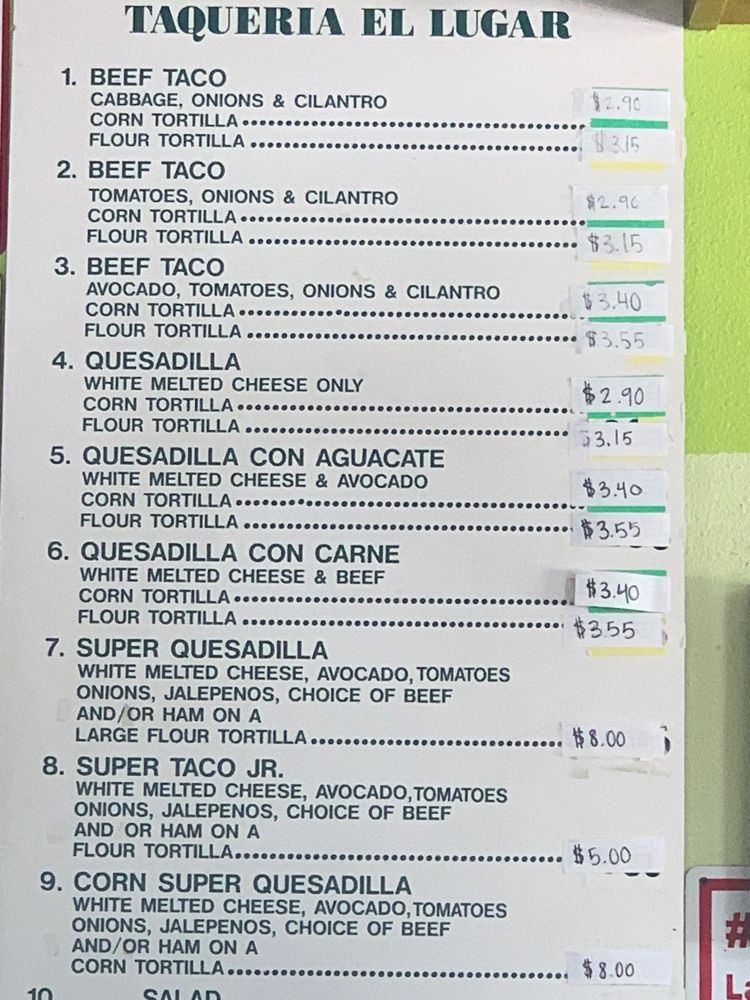 TAQUERIA EL LUGAR
1. BEEF TACO
CABBAGE, ONIONS & CILANTRO
CORN TORTILLA $2.90
FLOUR TORTILLA $3.15
2. BEEF TACO
TOMATOES, ONIONS & CILANTRO
CORN TORTILLA $2.90
FLOUR TORTILLA $3.15
3. BEEF TACO
AVOCADO, TOMATOES, ONIONS & CILANTRO
CORN TORTILLA $3.40
FLOUR TORTILLA $3.55
4. QUESADILLA
WHITE MELTED CHEESE ONLY
CORN TORTILLA $2.90
FLOUR TORTILLA $3.15
5. QUESADILLA CON AGUACATE
WHITE MELTED CHEESE & AVOCADO
CORN TORTILLA $3.40
FLOUR TORTILLA $3.55
6. QUESADILLA CON CARNE
WHITE MELTED CHEESE & BEEF
CORN TORTILLA $3.40
FLOUR TORTILLA $3.55
7. SUPER QUESADILLA
WHITE MELTED CHEESE, AVOCADO, TOMATOES
ONIONS, JALEPENOS, CHOICE OF BEEF
AND/OR HAM ON A
LARGE FLOUR TORTILLA $8.00
8. SUPER TACO JR.
WHITE MELTED CHEESE, AVOCADO, TOMATOES
ONIONS, JALEPENOS, CHOICE OF BEEF
AND OR HAM ON A
FLOUR TORTILLA $5.00
9. CORN SUPER QUESADILLA
WHITE MELTED CHEESE, AVOCADO, TOMATOES
ONIONS, JALEPENOS, CHOICE OF BEEF
AND/OR HAM ON A
CORN TORTILLA $8.00
10. SALAD
#